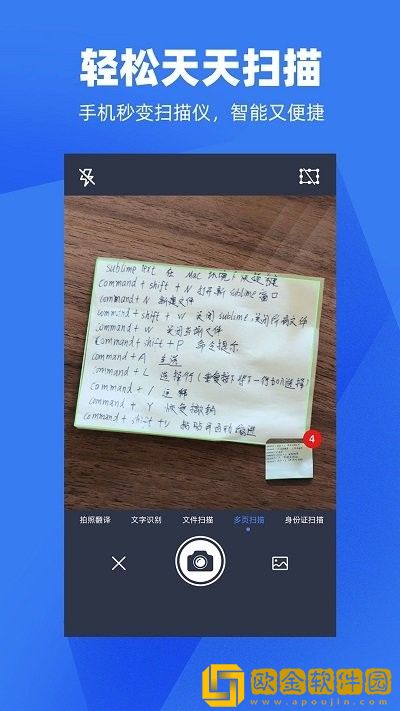 轻松天天扫描
手机秒变扫描仪，智能又便捷
sublime Text 在 Mac 环境下快捷键
command + shift + N 打开新 sublime 窗口
command + N 新建文件
command + shift + W 关闭 sublime 关闭所有文件
command + W 关闭当前文件
command + shift + P 命令提示
command + A 全选
command + L 选择行(重复按下将下一行加入选择)
command + / 注释
command + Y 恢复撤销
command + shift + V 粘贴并自动缩进
4
拍照翻译 文字识别 文件扫描 多页扫描 身份证扫描
欧金软件园
www.apoujin.com